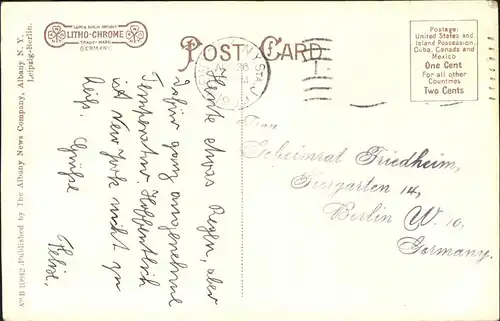 LITHO-CHROME
TRADE MARK
GERMANY
POST CARD
Postage:
United States and
Island Possession,
Cuba, Canada and
Mexico
One Cent
For all other
Countries
Two Cents
No. B 10842. Published by The Albany News Company, Albany N. Y.
Leipzig-Berlin.
Heute etwas Regen, aber
dafür ganz angenehme
Temperatur. Hoffentlich
ist New York nicht zu
heiß. Grüße
Frau
Geheimrat Friedheim,
Tiergarten 14,
Berlin W. 10,
Germany.